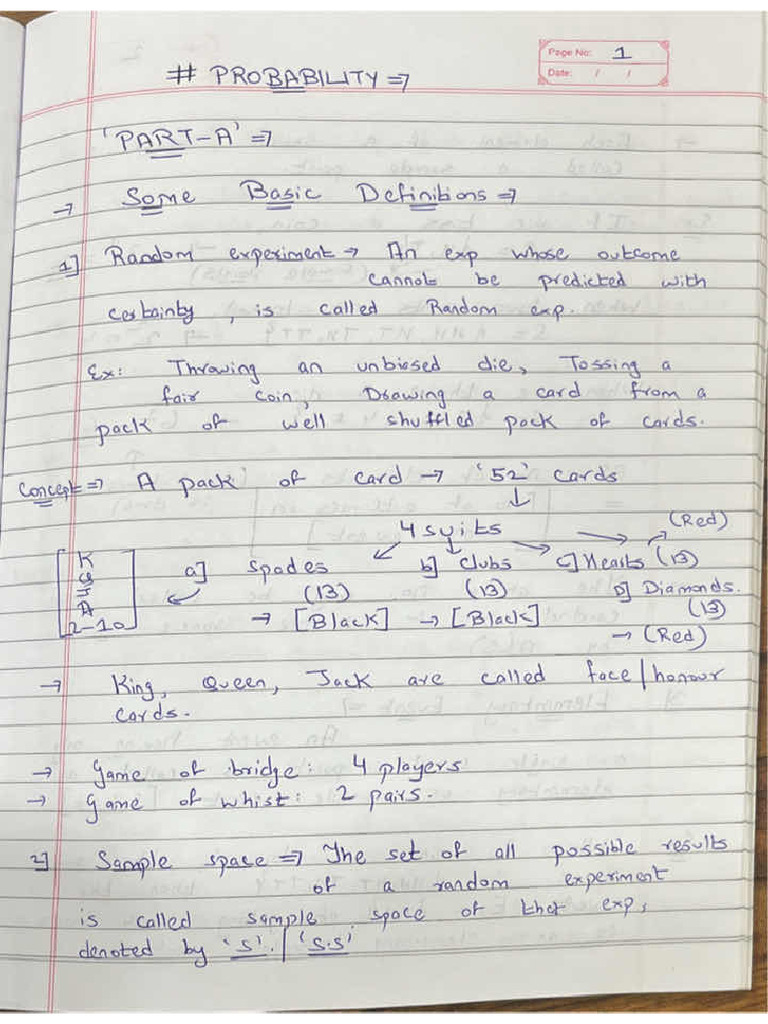 Page No: 1
Date: / /
# PROBABILITY ⇒
'PART-A' ⇒
→ Some Basic Definitions ⇒
1] Random experiment → An exp whose outcome
cannot be predicted with
certainty, is called Random exp.
Ex: Throwing an unbiased die, Tossing a
fair coin, Drawing a card from a
pack of well shuffled pack of cards.
Concept ⇒ A pack of card → '52' cards
↓
4 suits (Red)
K a] Spades b] Clubs c] Hearts (13)
Q (13) (13) D] Diamonds.
J → [Black] → [Black] (13)
A → (Red)
2-10
→ King, Queen, Jack are called face/honour
cards.
→ Game of bridge: 4 players
→ Game of whist: 2 pairs.
2] Sample space ⇒ The set of all possible results
of a random experiment
is called sample space of that exp,
denoted by 'S'. / 'S.S'